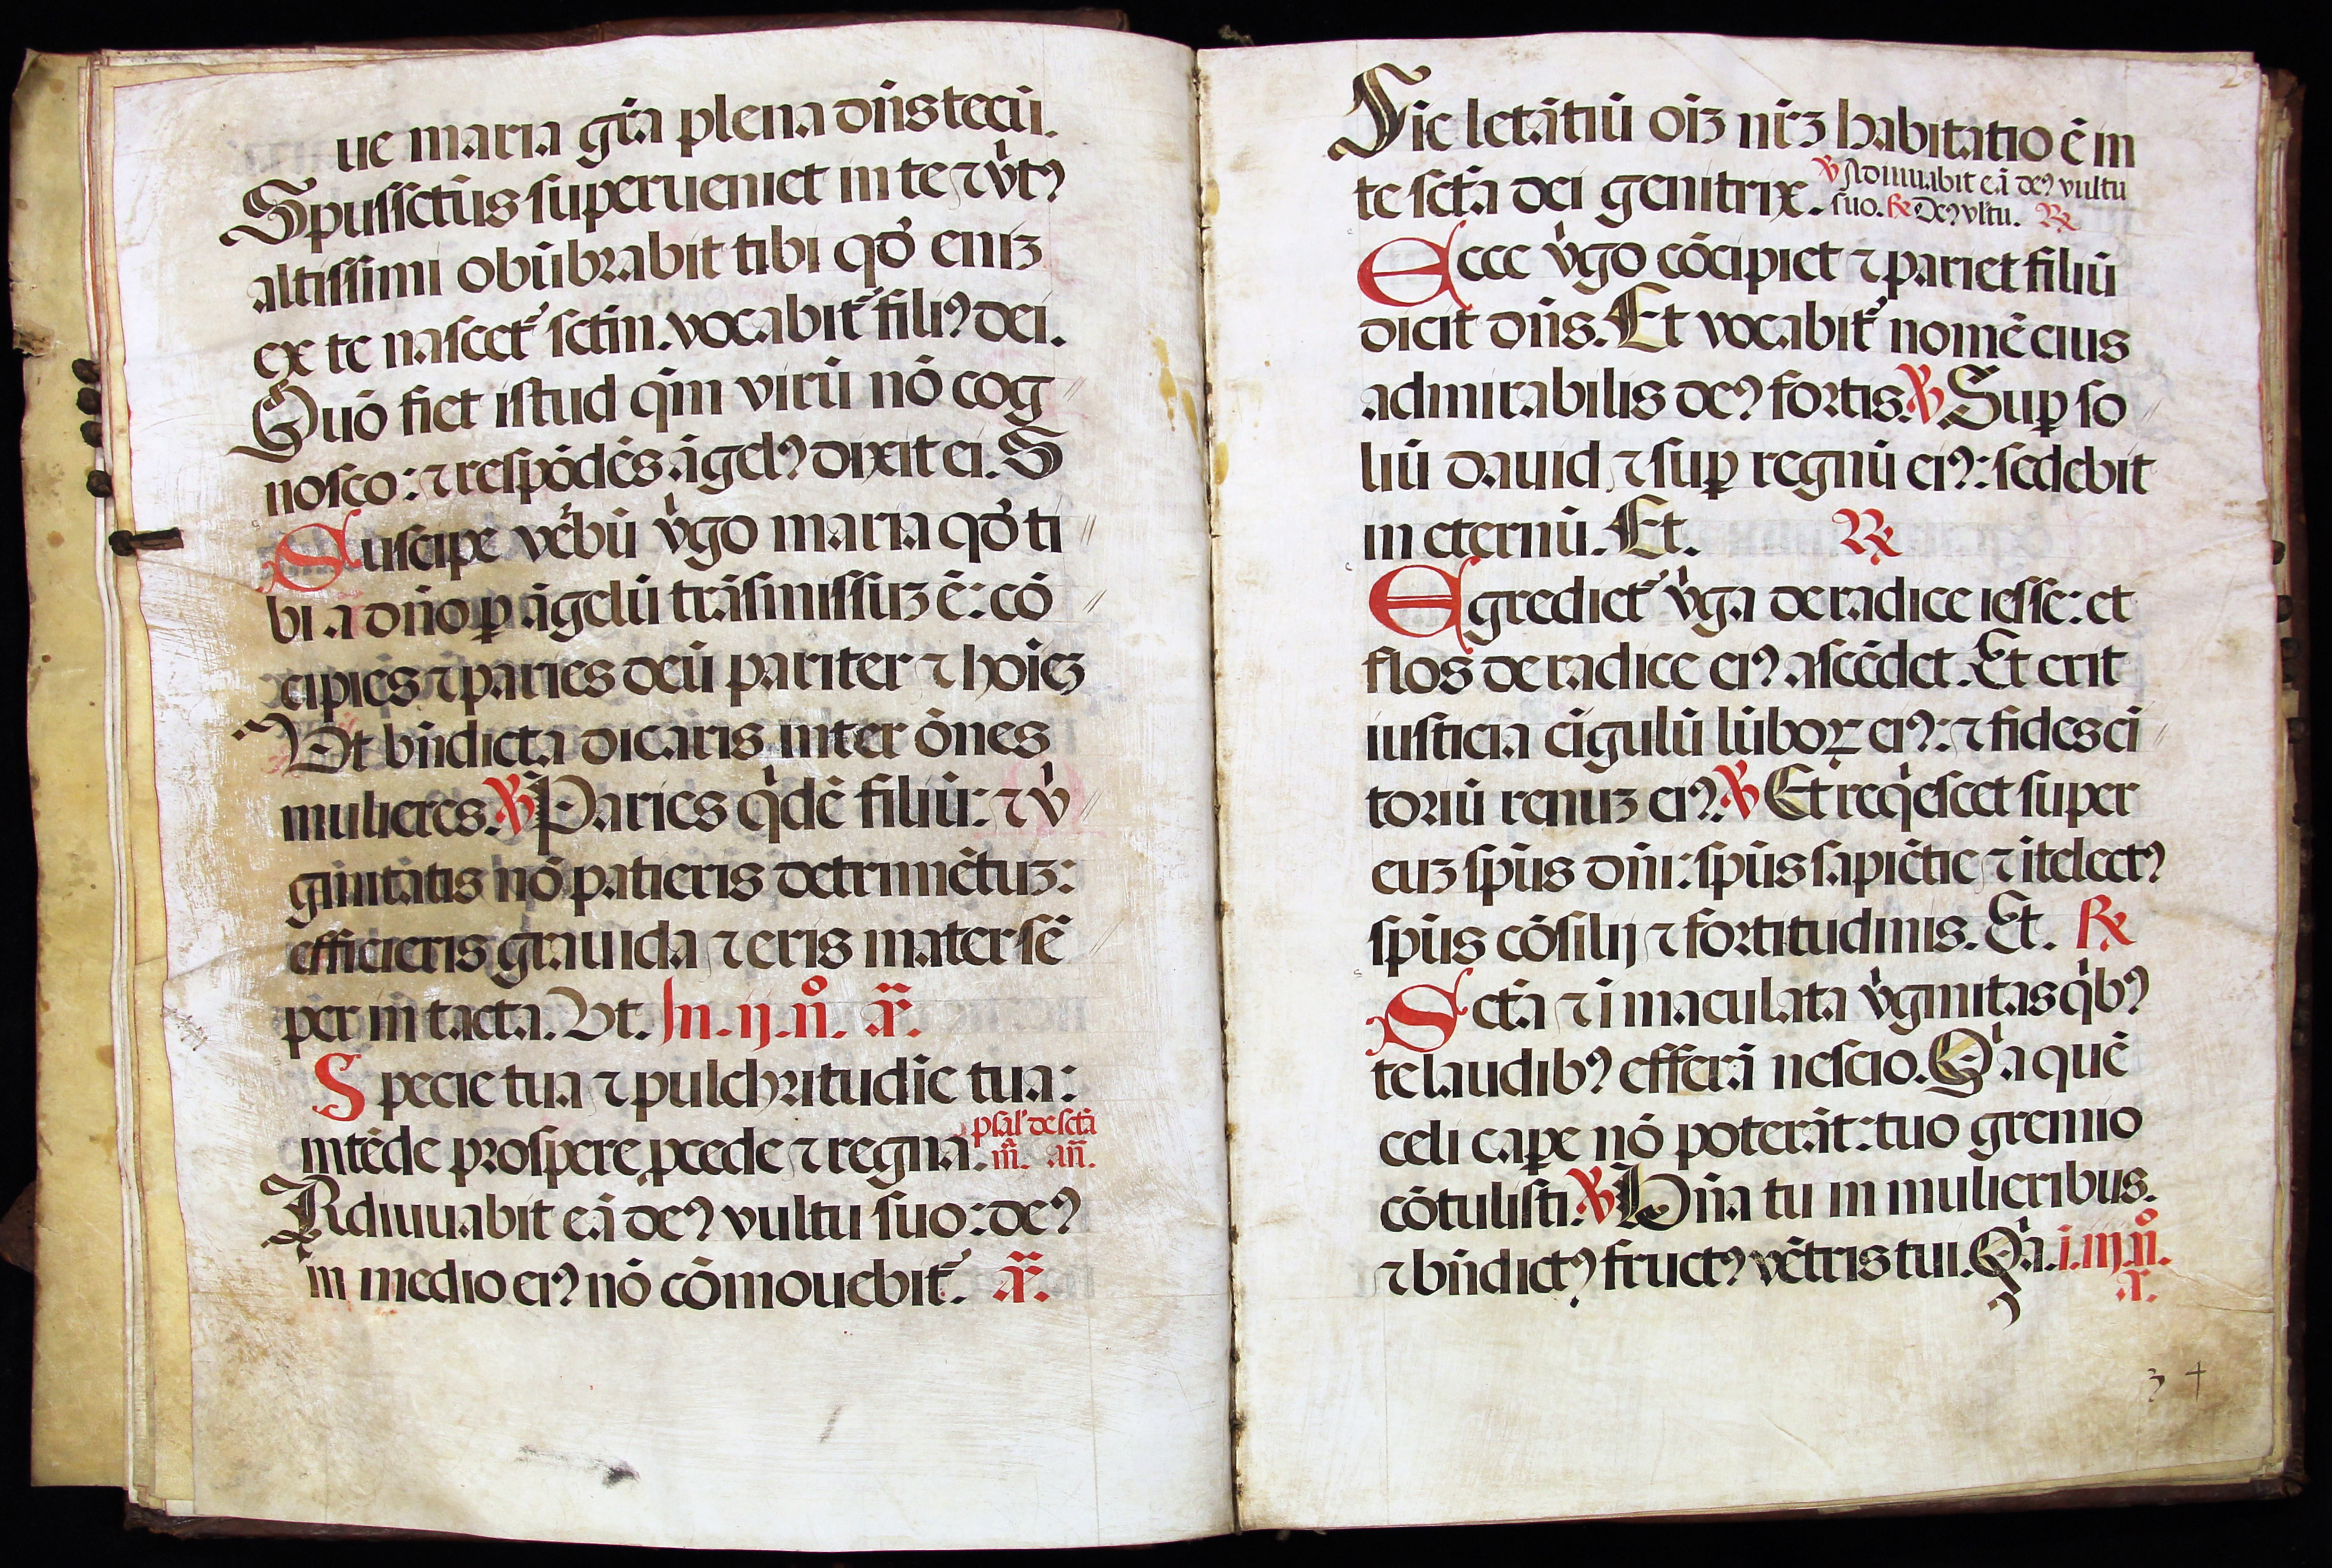 ue maria gr̄a plena dn̄s tecū.
Spussctūs superueniet in te ⁊ v̇tꝰ
altissimi obūbrabit tibi qd̓ eniꝫ
ex te nascet᷑ sctm̄. vocabit᷑ filiꝰ dei.
Quō fiet istud qm̄ virū nō cog
nosco: ⁊ respōdēs āgelꝰ dixit ei. S
Suscipe vēbū v̇go maria qd̓ ti
bi a dn̄o ꝑ āgelū trāsmissuꝫ ē: cō
cipiēs ⁊ paries deū pariter ⁊ hoīeꝫ
Vt bn̄dicta dicaris inter ōnes
mulieres. ℣ Paries q̇dē filiū: ⁊ v̇
ginitatis nō patieris detrimētuꝫ:
efficieris grauida ⁊ eris mater sē
per in tacta. Vt. In. ij. n̊. a͞r.
Specie tua ⁊ pulchritudīe tua:
intēde prospere ꝓcede ⁊ regna. psal᷑ de sctā
m̄. an̄.
Adiuuabit eā deꝰ vultu suo: deꝰ
in medio eiꝰ nō cōmouebit᷑. a͞r.
Sic letātiū oīꝫ nr̄ꝫ habitatio ē in
te sctā dei genitrix. ℣ Adiuuabit eā deꝰ vultu
suo. ℟ Deꝰ vltu. ℟
Ecce v̇go cōcipiet ⁊ pariet filiū
dicit dn̄s. Et vocabit᷑ nomē eius
admirabilis deꝰ fortis. ℣ Suꝑ so
liū dauid ⁊ suꝑ regnū eiꝰ: sedebit
in eternū. Et. ℟
Egrediet᷑ v̇ga de radice iesse: et
flos de radice eiꝰ ascēdet. Et erit
iusticia cīgulū lūboꝝ eiꝰ: ⁊ fides cī
toriū renuꝫ eiꝰ. ℣ Et req̇escet super
euꝫ spūs dn̄i: spūs sapiētie ⁊ ītelectꝰ
spūs cōsilij ⁊ fortitudinis. Et. ℟
Sctā ⁊ ī maculata v̇ginitas q̇bꝰ
te laudibꝰ efferā nescio. Q̇a quē
celi caꝑe nō poterāt: tuo gremio
cōtulisti. ℣ Bn̄a tu in mulieribus.
⁊ bn̄dictꝰ fructꝰ vētris tui. Q̇a. i. iij. n̊.
a͞r.
3 +